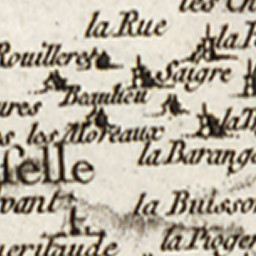 les Ch
la Rue
la P
Rouilleres
Saigre
Beaulieu
ures
la T
les Moreaux
la Barang
selle
vant
la Buisso
la Pioger
eritaude